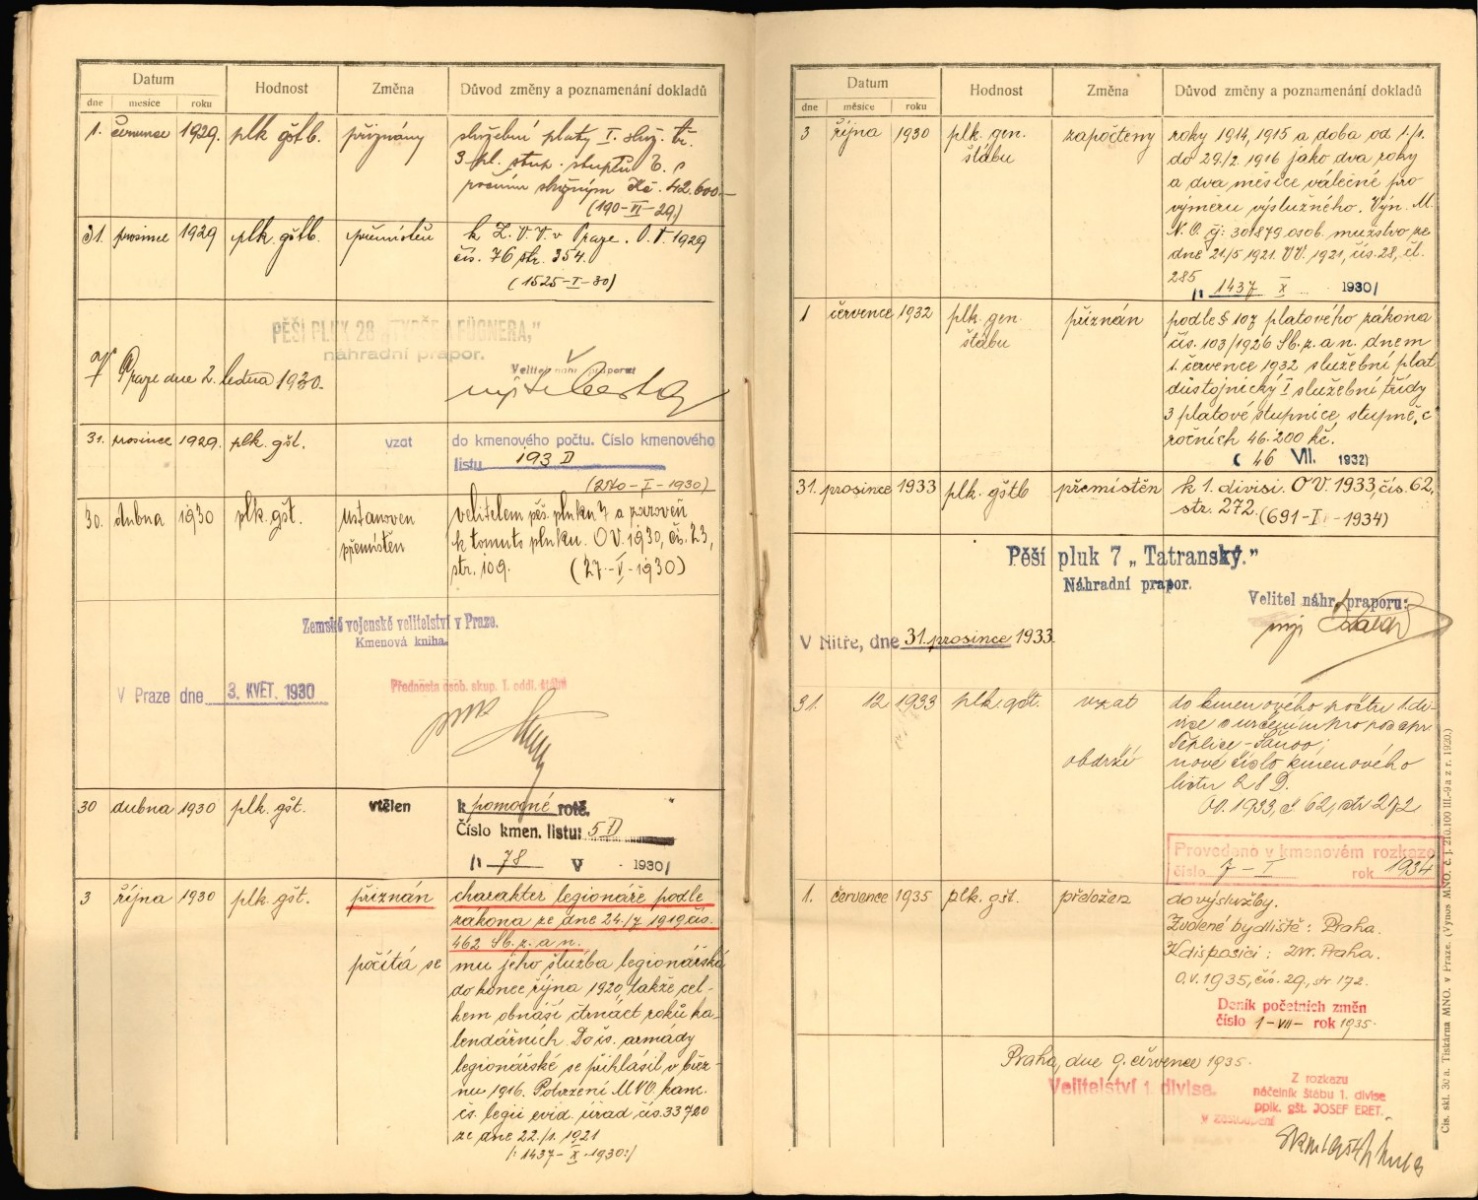 Datum Hodnost Změna Důvod změny a poznamenání dokladů
dne měsíce roku
1. července 1929. plk gštb. přiznány služební platy I. služ. tř.
3 pl. stup. stupně c. s
ročním služným Kč. 42.600.—
(190-VI-29.)
31. prosince 1929 plk. gštb. přemístěn k Z.V.V. v Praze. O.V. 1929
čís. 76 str. 354.
(1525-I-30)
PĚŠÍ PLUK 28 „TYRŠE A FÜGNERA,"
náhradní prapor.
V Praze dne 2. ledna 1930.
Velitel náhr. praporu:
31. prosince 1929. plk. gšt. vzat do kmenového počtu. Číslo kmenového
listu 193 D
(2540-I-1930)
30. dubna 1930 plk. gšt. ustanoven velitelem pěš. pluku 7 a zároveň
přemístěn k tomuto pluku. O.V. 1930, čís. 23,
str. 109. (27.-V-1930)
Zemské vojenské velitelství v Praze.
Kmenová kniha.
V Praze dne 3. KVĚT. 1930
Přednosta osob. skup. 1. oddl. štábu
30 dubna 1930 plk. gšt. vtělen k pomocné rotě.
Číslo kmen. listu: 5 D
/1 78 V 1930/
3 října 1930 plk. gšt. přiznán charakter legionáře podle
zákona ze dne 24./7 1919 čís.
462 Sb. z. a n.
počítá se mu jeho služba legionářská
do konce října 1920, takže cel-
kem obnáší čtrnáct roků ka-
lendářních. Do čs. armády
legionářské se přihlásil v břez-
nu 1916. Potvrzení MNO. kanc.
čs. legií evid. úřad čís. 33720
ze dne 22./1. 1921
/:1437-X-1930:/
Datum Hodnost Změna Důvod změny a poznamenání dokladů
dne měsíce roku
3 října 1930 plk. gen. štábu započteny roky 1914, 1915 a doba od 1./1.
do 29./2 1916 jako dva roky
a dva měsíce válečné pro
výměru výslužného. Výn. M.
N.O. čj: 30.879 osob. mužstvo ze
dne 21/5 1921. VV. 1921, čís. 28, čl.
285
/1 1437 X 1930/
1 července 1932 plk. gen. štábu přiznán podle § 107 platového zákona
čís. 103/1926 Sb. z. a n. dnem
1. července 1932 služební plat
důstojnický I služební třídy
3 platové stupnice, stupně, c
ročních 46.200 kč.
( 46 VII. 1932)
31. prosince 1933 plk. gštb přemístěn k 1. divisi. O.V. 1933, čís. 62,
str. 272. (691-I-1934)
Pěší pluk 7 „Tatranský."
Náhradní prapor.
Velitel náhr. praporu:
mjr
V Nitře, dne 31. prosince 1933.
31. 12 1933 plk. gšt. vzat do kmenového počtu 1. di-
vize s určením pro
Teplice-Šanov;
obdržel nové číslo kmenového
listu
O.V. 1933, č 62, str 272
Provedeno v kmenovém rozkaze
číslo 7 - I rok 1934
1. července 1935 plk. gšt. přeložen do výslužby.
Zvolené bydliště: Praha.
K disposici: ZVV. Praha.
O.V. 1935, čís. 29, str 172.
Deník početních změn
číslo 1-VII- rok 1935.
Praha, dne 9. července 1935.
Velitelství 1. divise.
Z rozkazu
náčelník štábu 1. divise
pplk. gšt. JOSEF ERET.
v zastoupení
Čís. skl. 30 a. Tiskárna MNO. v Praze. (Výnos MNO. č. j. 210.100 III.-9 a z r. 1920.)